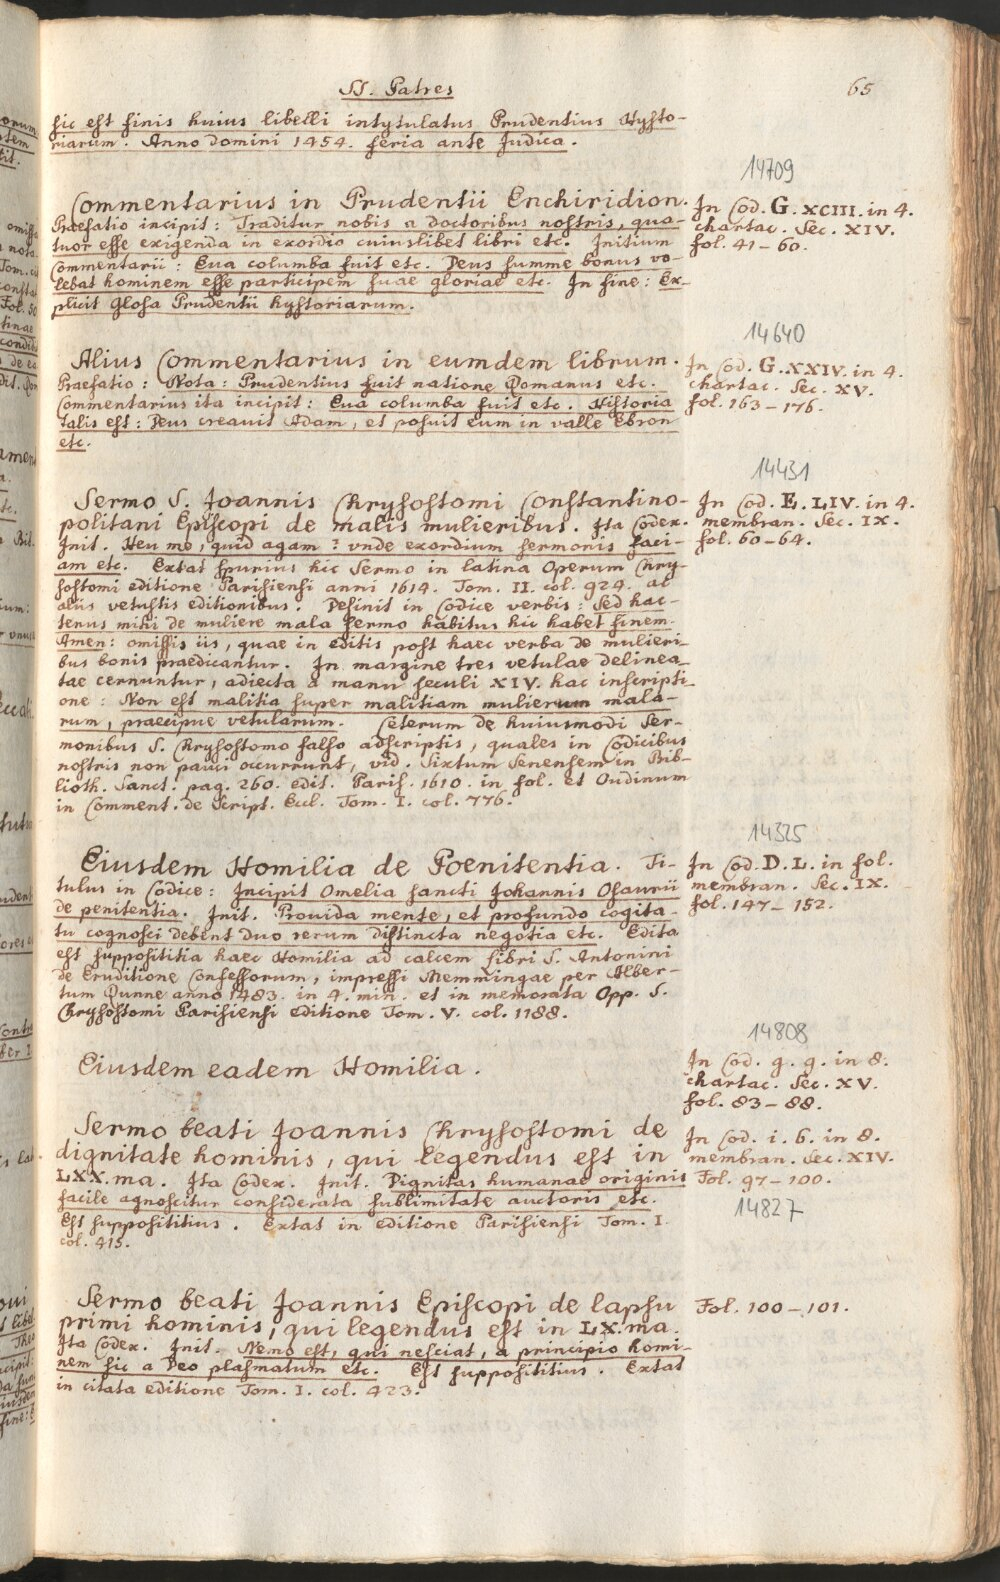 SS. Patres
65
sic est finis huius libelli intytulatus Prudentius Hysto-
riarum. Anno Domini 1454. feria ante Judica.
14709
Commentarius in Prudentii Enchiridion.
Praefatio incipit: Traditur nobis a doctoribus nostris, qua-
tuor esse exigenda in exordio cuiuslibet libri etc. Initium
Commentarii: Eua columba fuit etc. Deus summe bonus vo-
lebat hominem esse participem suae gloriae etc. In fine: Ex-
plicit Glosa Prudentii hystoriarum.
In Cod. G. XCIII. in 4.
chartac. Sec. XIV.
fol. 41-60.
14640
Alius Commentarius in eumdem librum.
Praefatio: Nota: Prudentius fuit natione Romanus etc.
Commentarius ita incipit: Eua columba fuit etc. Historia
talis est: Deus creauit Adam, et posuit eum in valle Ebron
etc.
In Cod. G. XXIV. in 4.
chartac. Sec. XV.
fol. 163-176.
14431
Sermo S. Joannis Chrysostomi Constantino-
politani Episcopi de malis mulieribus. Ita Codex.
Init. Heu me, quid agam? vnde exordium sermonis faci-
am etc. Extat spurius hic Sermo in latina Operum Chry-
sostomi editione Parisiensi anni 1614. Tom. II. col. 924. ac
aliis vetustis editionibus. Desinit in Codice verbis: Sed hac-
tenus mihi de muliere mala sermo habitus hic habet finem.
Amen: omissis iis, quae in editis post haec verba de mulieri-
bus bonis praedicantur. In margine tres vetulae delinea-
tae cernuntur, adiecta a manu seculi XIV. hac inscripti-
one: Non est malitia super malitiam mulierum mala-
rum, praecipue vetularum. Ceterum de huiusmodi Ser-
monibus S. Chrysostomo falso adscriptis, quales in Codicibus
nostris non pauci occurrunt, vid. Sixtum Senensem in Bib-
lioth. Sanct. pag. 260. edit. Paris. 1610. in fol. et Oudinum
in Comment. de Script. Eccl. Tom. I. col. 776.
In Cod. E. LIV. in 4.
membran. Sec. IX.
fol. 60-64.
14325
Eiusdem Homilia de Poenitentia. Ti-
tulus in Codice: Incipit Omelia sancti Johannis Osaurii
de penitentia. Init. Prouida mente, et profundo cogita-
tu cognosci debent duo rerum distincta negotia etc. Edita
est supposititia haec Homilia ad calcem libri S. Antonini
de Eruditione Confessorum, impressi Memmingae per Alber-
tum Dunne anno 1483. in 4. min. et in memorata Opp. S.
Chrysostomi Parisiensi editione Tom. V. col. 1188.
In Cod. D. L. in fol.
membran. Sec. IX.
fol. 147-152.
14808
Eiusdem eadem Homilia.
In Cod. g. g. in 8.
chartac. Sec. XV.
fol. 83-88.
Sermo beati Joannis Chrysostomi de
dignitate hominis, qui legendus est in
LXX.ma. Ita Codex. Init. Dignitas humanae originis
facile agnoscitur considerata sublimitate auctoris etc.
Est supposititius. Extat in editione Parisiensi Tom. I.
col. 415.
In Cod. i. 6. in 8.
membran. Sec. XIV.
Fol. 97-100.
14827
Sermo beati Joannis Episcopi de lapsu
primi hominis, qui legendus est in LX.ma.
Ita Codex. Init. Nemo est, qui nesciat, a principio homi-
nem sic a Deo plasmatum etc. Est supposititius. Extat
in citata editione Tom. I. col. 423.
Fol. 100-101.